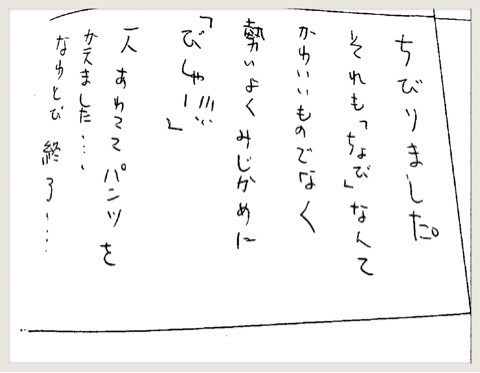 ちびりました。
それも「ちょび」なんて
かわいいものでなく
勢いよくみじかめに
「びしゃー!!!」
一人 あわてて パンツを
かえました……、
なわとび 終了……